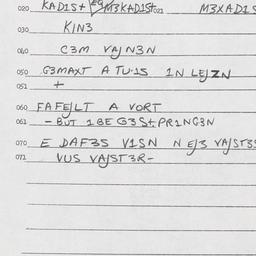 020 KAD1S+ M3KAD1St 021 M3XAD1S
030 K1N3
040 C3M VAJN3N
050 G3MAXT A TU-1S 1N LEJZN
051 +
060 FAFEJLT A VORT
061 - BUT 1BE G3S+PR1NG3N
070 E DAF3S V1SN N EJ3 VAJST3S
071 VUS VAJST3R-